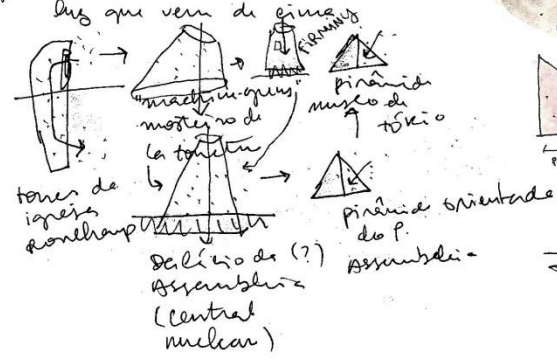 luz que vem de cima
FIRMINY
"machine-guns"
mosteiro de
la tourette
pirâmide
museo de
tókio
torres da
igreja
ronchamp
pirâmide orientada
do P.
Assembleia
Palácio da (?)
Assembleia
(central
nuclear)